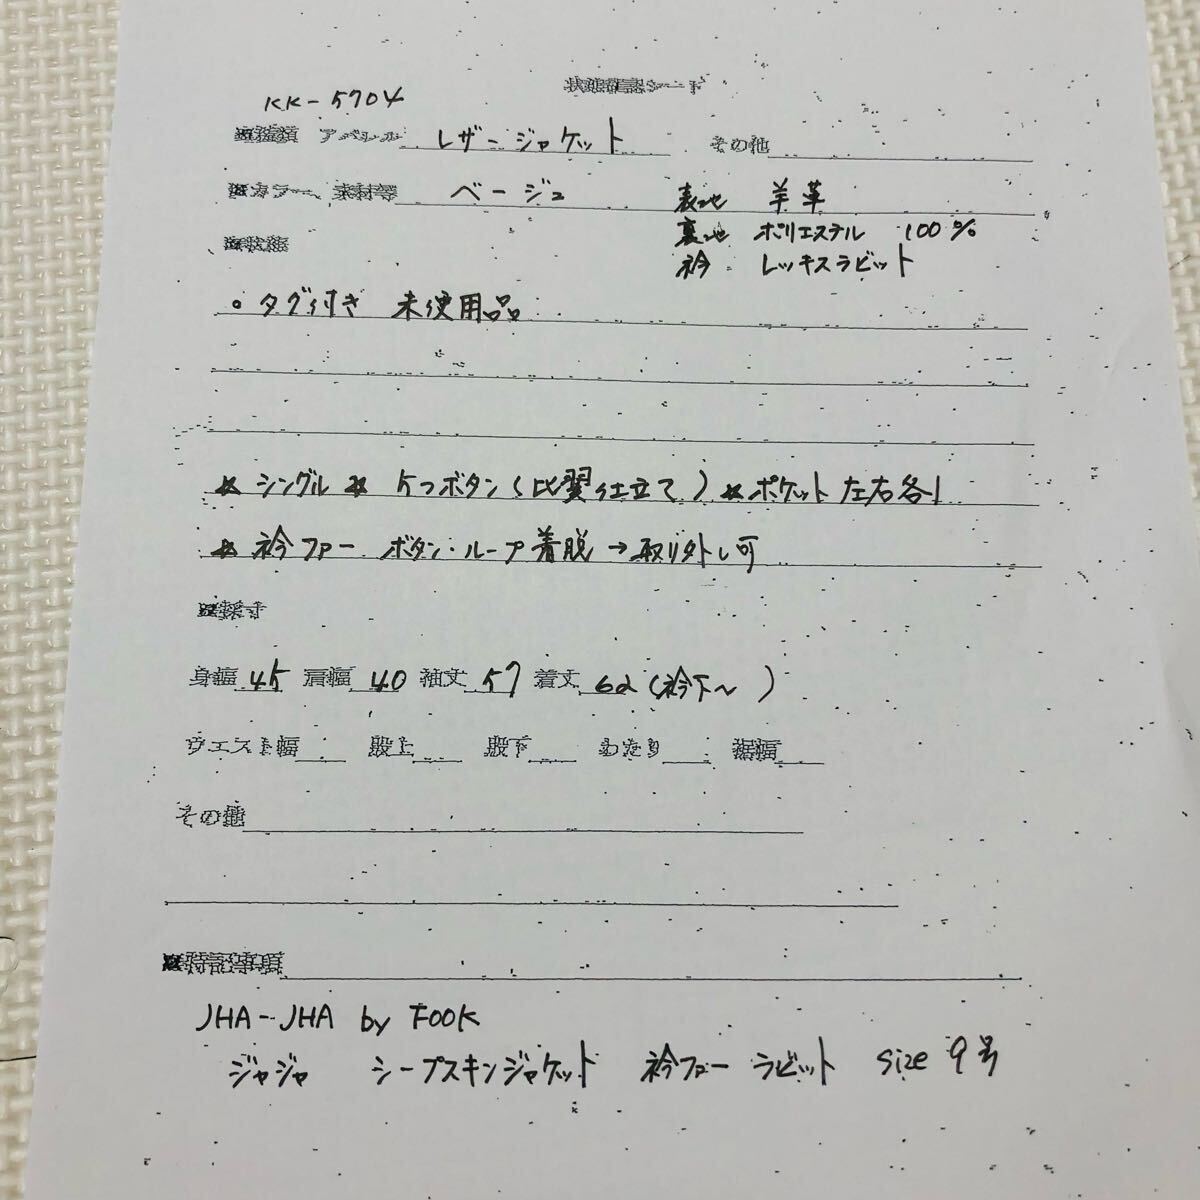 状態確認シート
KK-5704
※種類 アパレル レザージャケット その他
※カラー、素材等 ベージュ 表地 羊革
裏地 ポリエステル 100%
衿 レッキスラビット
※状態
○タグ付き 未使用品
★シングル ★5つボタン(比翼仕立て) ★ポケット左右各1
★衿ファー ボタン・ループ着脱→取り外し可
※採寸
身幅 45 肩幅 40 袖丈 57 着丈 62(衿下~ )
ウエスト幅 股上 股下 わたり 裾幅
その他
※特記事項
JHA-JHA by FOOK
ジャジャ シープスキンジャケット 衿ファー ラビット size 9号